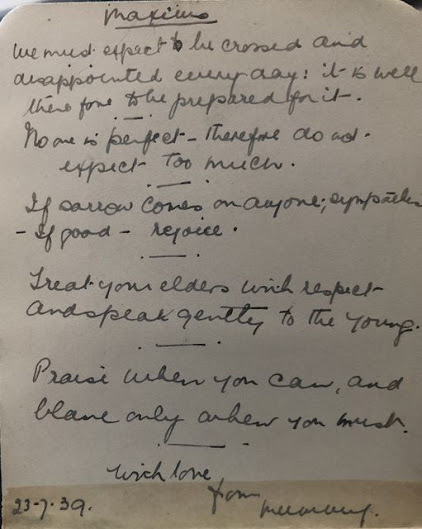 Maxims
We must expect to be crossed and
disappointed every day: it is well
therefore to be prepared for it.
No one is perfect - therefore do not
expect too much.
If sorrow comes on anyone; sympathise
- If good - rejoice.
Treat your elders with respect
and speak gently to the young.
Praise when you can, and
blame only when you must.
With love
from
Mummy.
23-7-39.